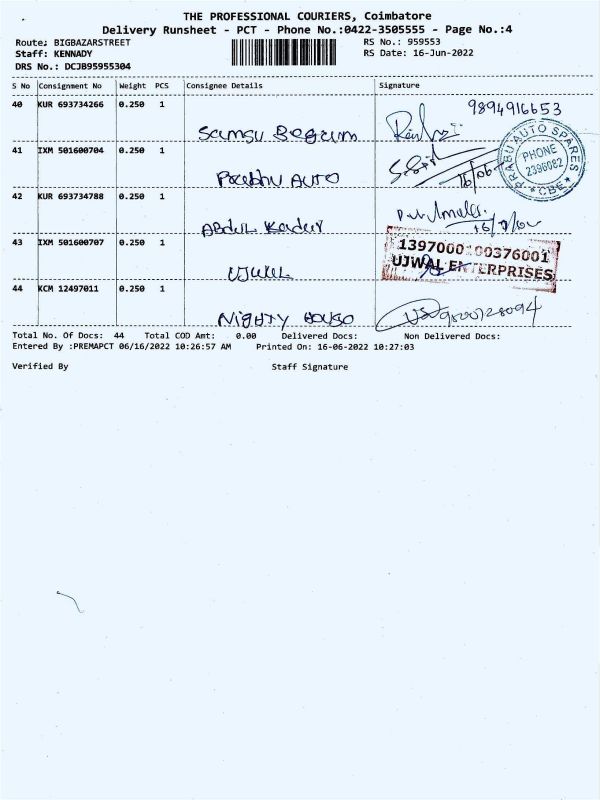 THE PROFESSIONAL COURIERS, Coimbatore
Delivery Runsheet - PCT - Phone No.:0422-3505555 - Page No.:4
Route: BIGBAZARSTREET RS No.: 959553
Staff: KENNADY RS Date: 16-Jun-2022
DRS No.: DCJB95955304
S No Consignment No Weight PCS Consignee Details Signature
40 KUR 693734266 0.250 1 Samsu Begam 9894916653
41 IXM 501600704 0.250 1 Prabhu Auto 16/06
PRABU AUTO SPARES
PHONE
2396082
CBE
42 KUR 693734788 0.250 1 Abdul Kader
43 IXM 501600707 0.250 1 Ujwal
1397000100376001
UJWAL ENTERPRISES
44 KCM 12497011 0.250 1 Nighty House
Total No. Of Docs: 44 Total COD Amt: 0.00 Delivered Docs: Non Delivered Docs:
Entered By :PREMAPCT 06/16/2022 10:26:57 AM Printed On: 16-06-2022 10:27:03
Verified By Staff Signature